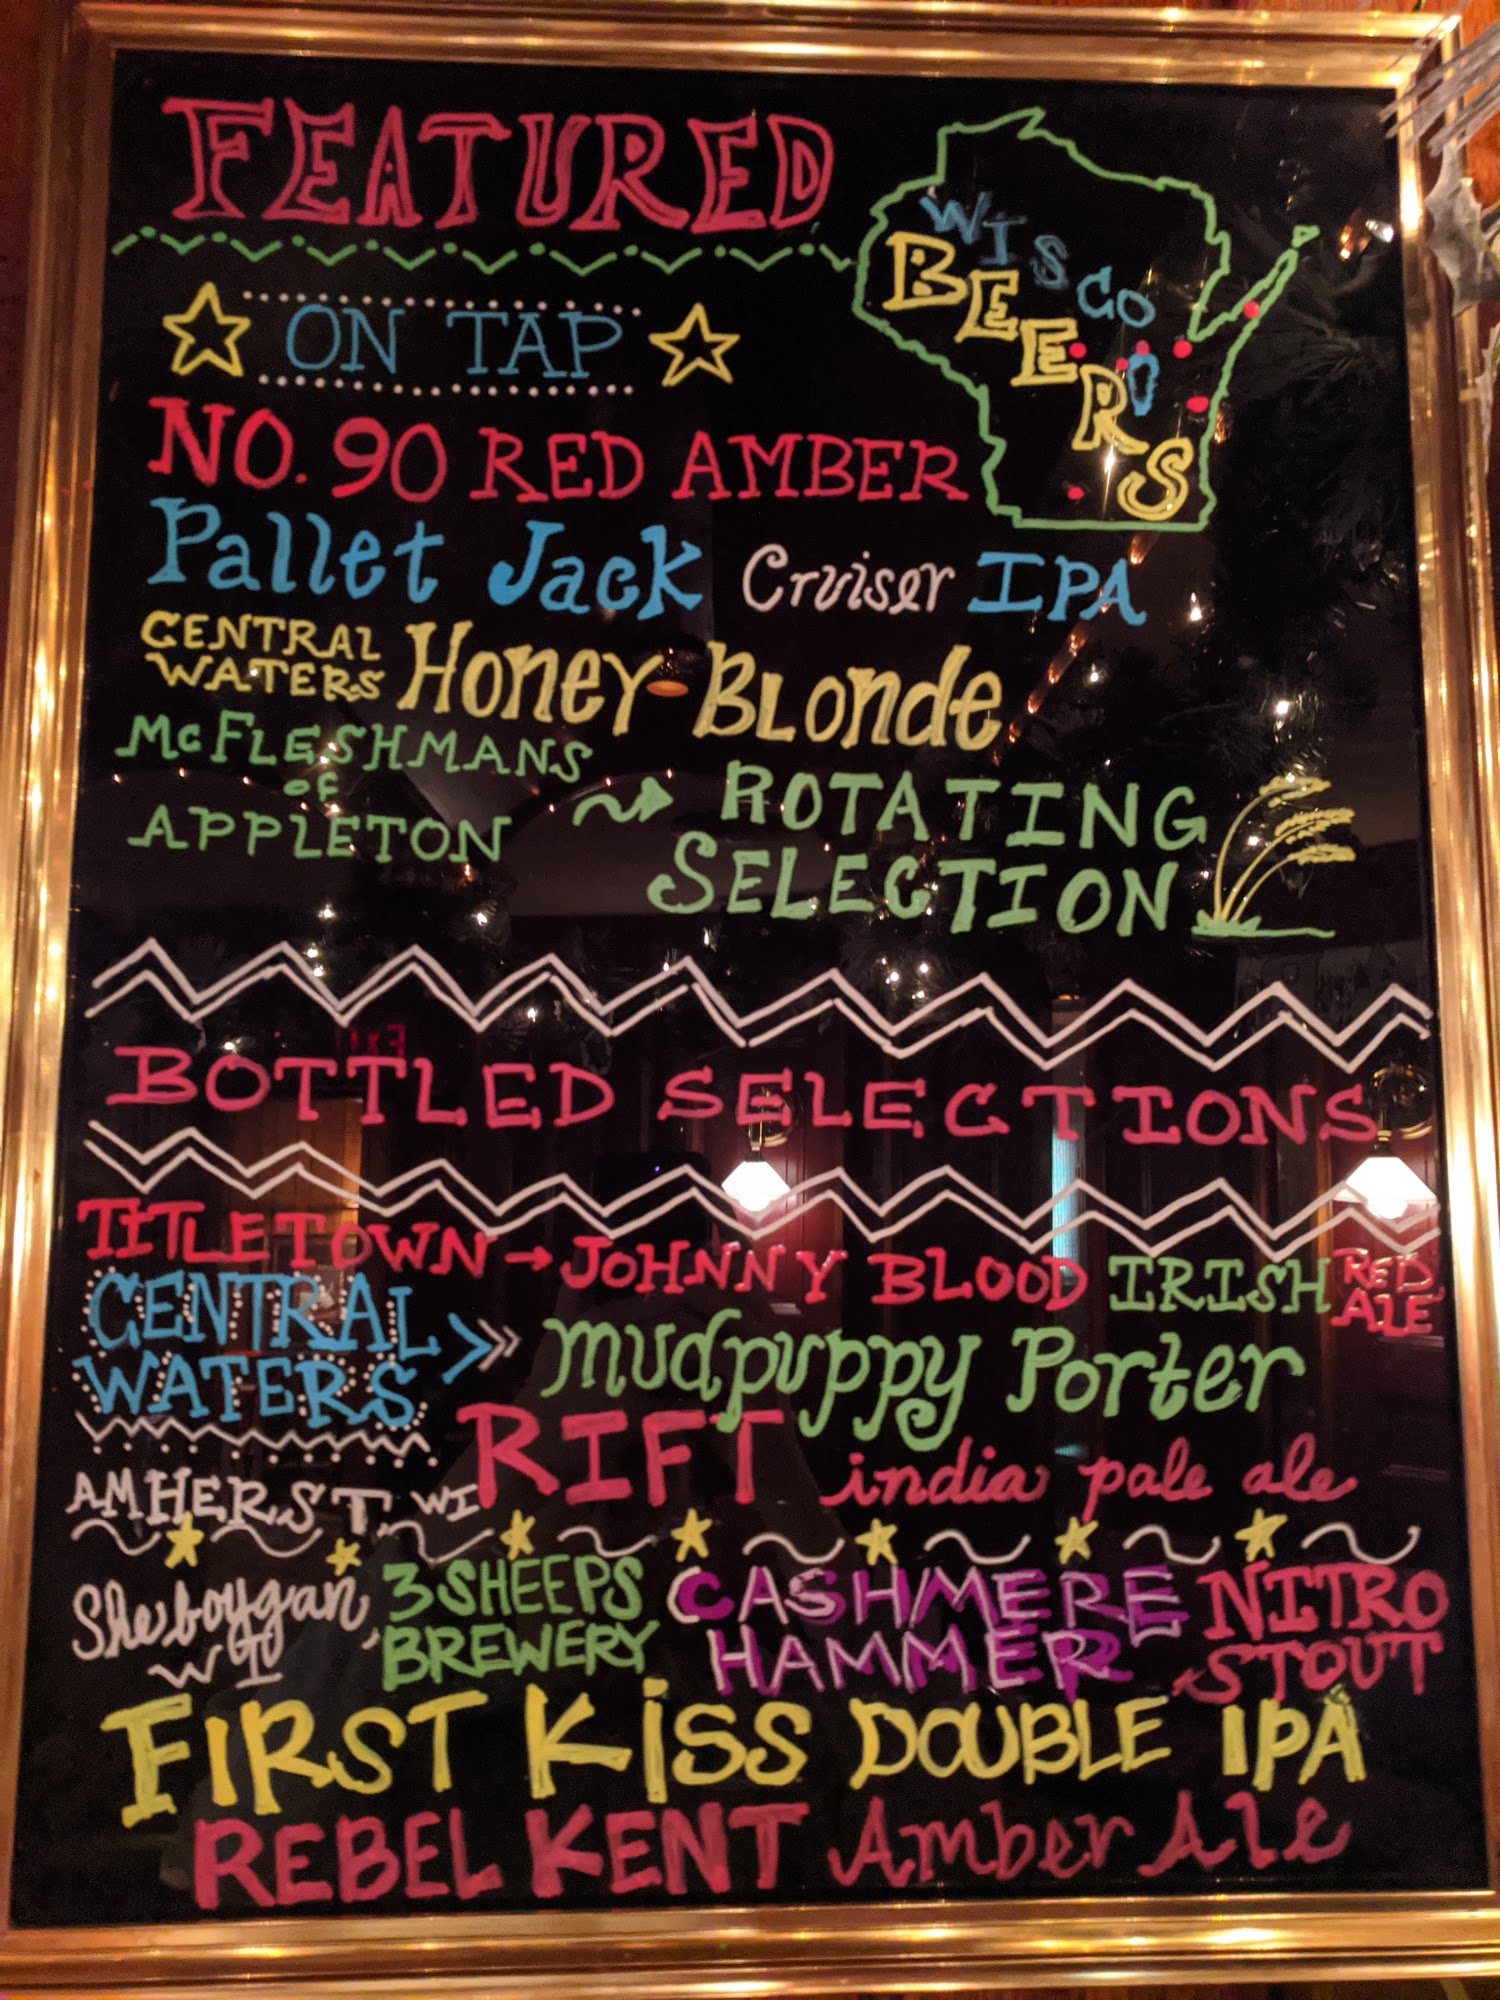 FEATURED
WISCO
BEERS
ON TAP
NO. 90 RED AMBER
Pallet Jack Cruiser IPA
CENTRAL
WATERS Honey Blonde
McFLESHMANS
OF
APPLETON
ROTATING
SELECTION
BOTTLED SELECTIONS
TITLETOWN → JOHNNY BLOOD IRISH RED
ALE
CENTRAL
WATERS
mudpuppy Porter
AMHERST, WI RIFT india pale ale
Sheboygan,
WI
3 SHEEPS
BREWERY
CASHMERE
HAMMER
NITRO
STOUT
FIRST KISS DOUBLE IPA
REBEL KENT Amber Ale